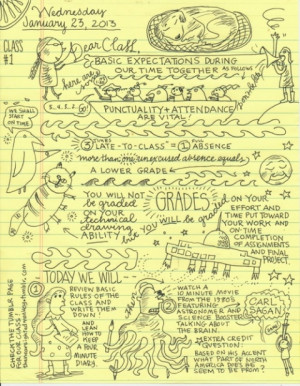 Wednesday
January 23, 2013
CLASS
#1
Dear Class,
here are
BASIC EXPECTATIONS DURING
OUR TIME TOGETHER AS FOLLOWS
WE SHALL
START
ON TIME
PUNCTUALITY + ATTENDANCE
ARE VITAL!
3 TIMES
LATE-TO-CLASS = 1 FULL
ABSENCE
more than one unexcused absence equals
A LOWER GRADE
YOU WILL NOT
be graded
ON YOUR
technical
drawing
ABILITY
but YOU WILL be graded
GRADES
ON YOUR
EFFORT AND
TIME PUT TOWARD
YOUR WORK AND
ON-TIME
COMPLETION
OF ASSIGNMENTS
AND FINAL
PROJECT
TODAY WE WILL
1 REVIEW BASIC
RULES OF THE
CLASS AND
WRITE THEM
DOWN!
AND
LEARN
HOW TO
KEEP A
FIVE
MINUTE
DIARY.
then
WATCH A
10 MINUTE MOVIE
FROM THE 1980s
FEATURING
ASTRONOMER AND
SCIENCE DOCTOR
TALKING ABOUT
THE BRAIN.
CARL
SAGAN
EXTRA CREDIT
QUESTION:
BASED ON HIS ACCENT
WHAT PART OF NORTH
AMERICA DOES HE
SEEM TO BE FROM?
CHECK THE TUMBLR PAGE